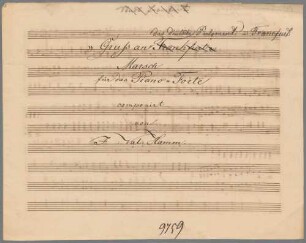 das deutsche Parlament in Frankfurt
Gruß an
Marsch
für das Piano-Forte
componirt
von
Hamm
9759